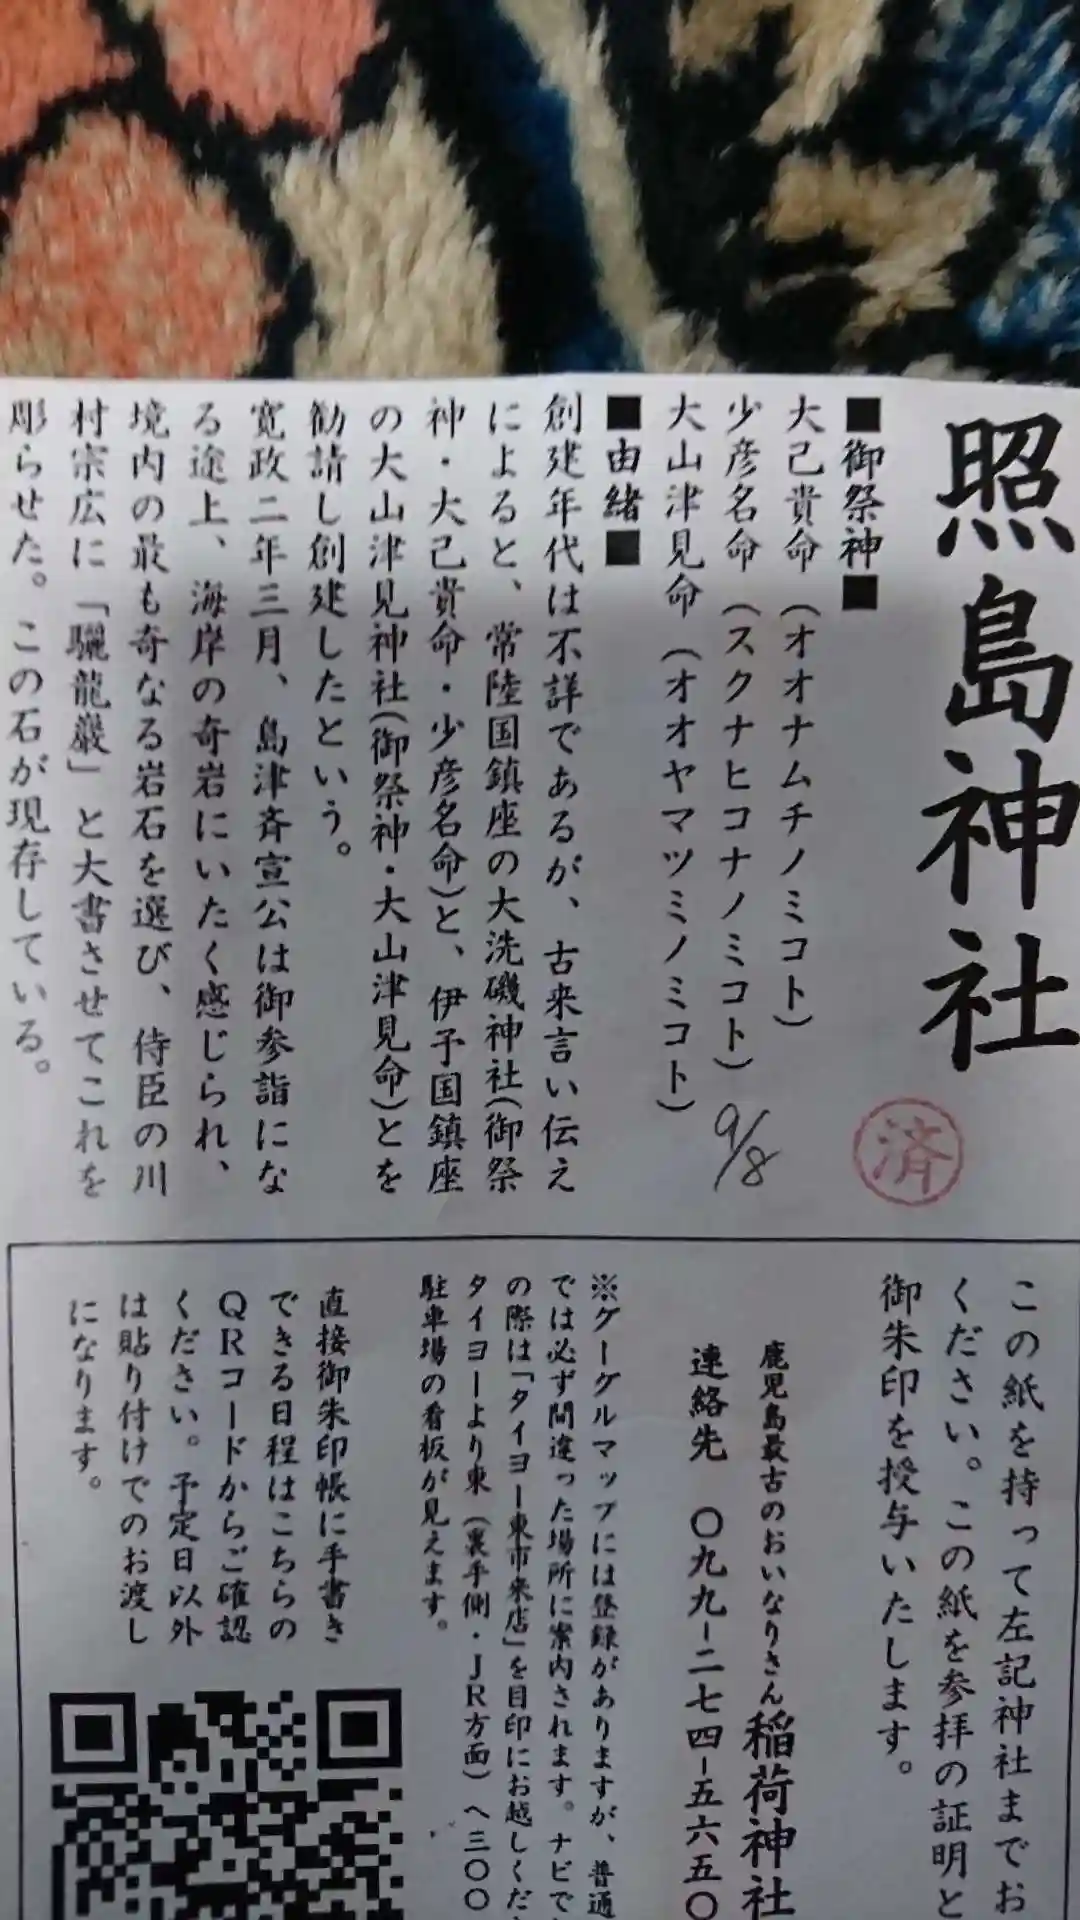 照島神社
■御祭神■
大己貴命（オオナムチノミコト）
少彦名命（スクナヒコナノミコト）
大山津見命（オオヤマツミノミコト）
■由緒■
創建年代は不詳であるが、古来言い伝え
によると、常陸国鎮座の大洗磯神社(御祭
神・大己貴命・少彦名命)と、伊予国鎮座
の大山津見神社(御祭神・大山津見命)とを
勧請し創建したという。
寛政二年三月、島津斉宣公は御参詣にな
る途上、海岸の奇岩にいたく感じられ、
境内の最も奇なる岩石を選び、侍臣の川
村宗広に「驪龍巌」と大書させてこれを
彫らせた。この石が現存している。
済
9/8
この紙を持って左記神社までお
ください。この紙を参拝の証明と
御朱印を授与いたします。
鹿児島最古のおいなりさん稲荷神社
連絡先　〇九九-二七四-五六五〇
※グーグルマップには登録がありますが、普通
では必ず間違った場所に案内されます。ナビで
の際は「タイヨー東市来店」を目印にお越しくだ
タイヨーより東（裏手側・JR方面）へ三〇〇
駐車場の看板が見えます。
直接御朱印帳に手書き
できる日程はこちらの
QRコードからご確認
ください。予定日以外
は貼り付けでのお渡し
になります。